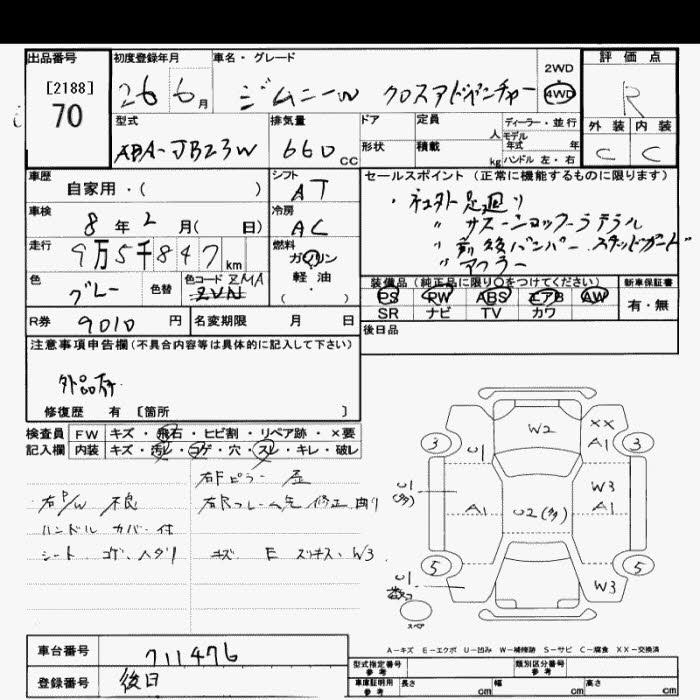 出品番号
[2188]
70
初度登録年月
26 6月
車名・グレード
ジムニーW クロスアドベンチャー
2WD
4WD
評価点
R
型式
ABA-JB23W
排気量
660 CC
ドア
定員
人
ディーラー・並行
モデル年式 年
形状
積載
kg
ハンドル 左・右
外装 内装
C C
車歴
自家用・( )
シフト
AT
セールスポイント(正常に機能するものに限ります)
・社外足廻り
〃 サス-ショック-ラテラル
〃 前後バンパー
〃 マフラー
車検
8年2月( 日)
冷房
AC
走行
9万5千847km
燃料
ガソリン
軽油
( )
色
グレー
色替
色コード ZMA
ZVN
装備品(純正品に限り○をつけてください)
PS PW ABS エアB AW
SR ナビ TV カワ
新車保証書
有・無
R券 9010円
名変期限 月 日
後日品
注意事項申告欄(不具合内容等は具体的に記入して下さい)
外品有
修復歴 有 [箇所 ]
検査員記入欄
FW キズ・飛石・ヒビ割・リペア跡・×要
内装 キズ・汚レ・コゲ・穴・スレ・キレ・破レ
右Fピラー 歪
右P/W 不良
右Rフレーム先 修正 曲り
ハンドル カバー付
シート コゲ・ヘタリ
キズ E W3
W2
XX
A1
3
3
U1
U1
(多)
A1
U2(多)
W3
A1
5
5
U1
W3
スペア
A-キズ E-エクボ U-凹み W-補修跡 S-サビ C-腐食 XX-交換済
車台番号 711476
登録番号 後日
型式指定番号 参考
類別区分番号 参考
車庫証明用 参考
長さ cm
幅 cm
高さ cm